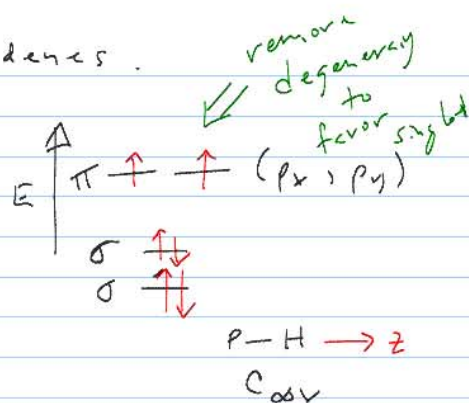 denes.
remove
degeneracy
to
favor singlet
E
π (px, py)
σ
σ
P–H → z
C∞v